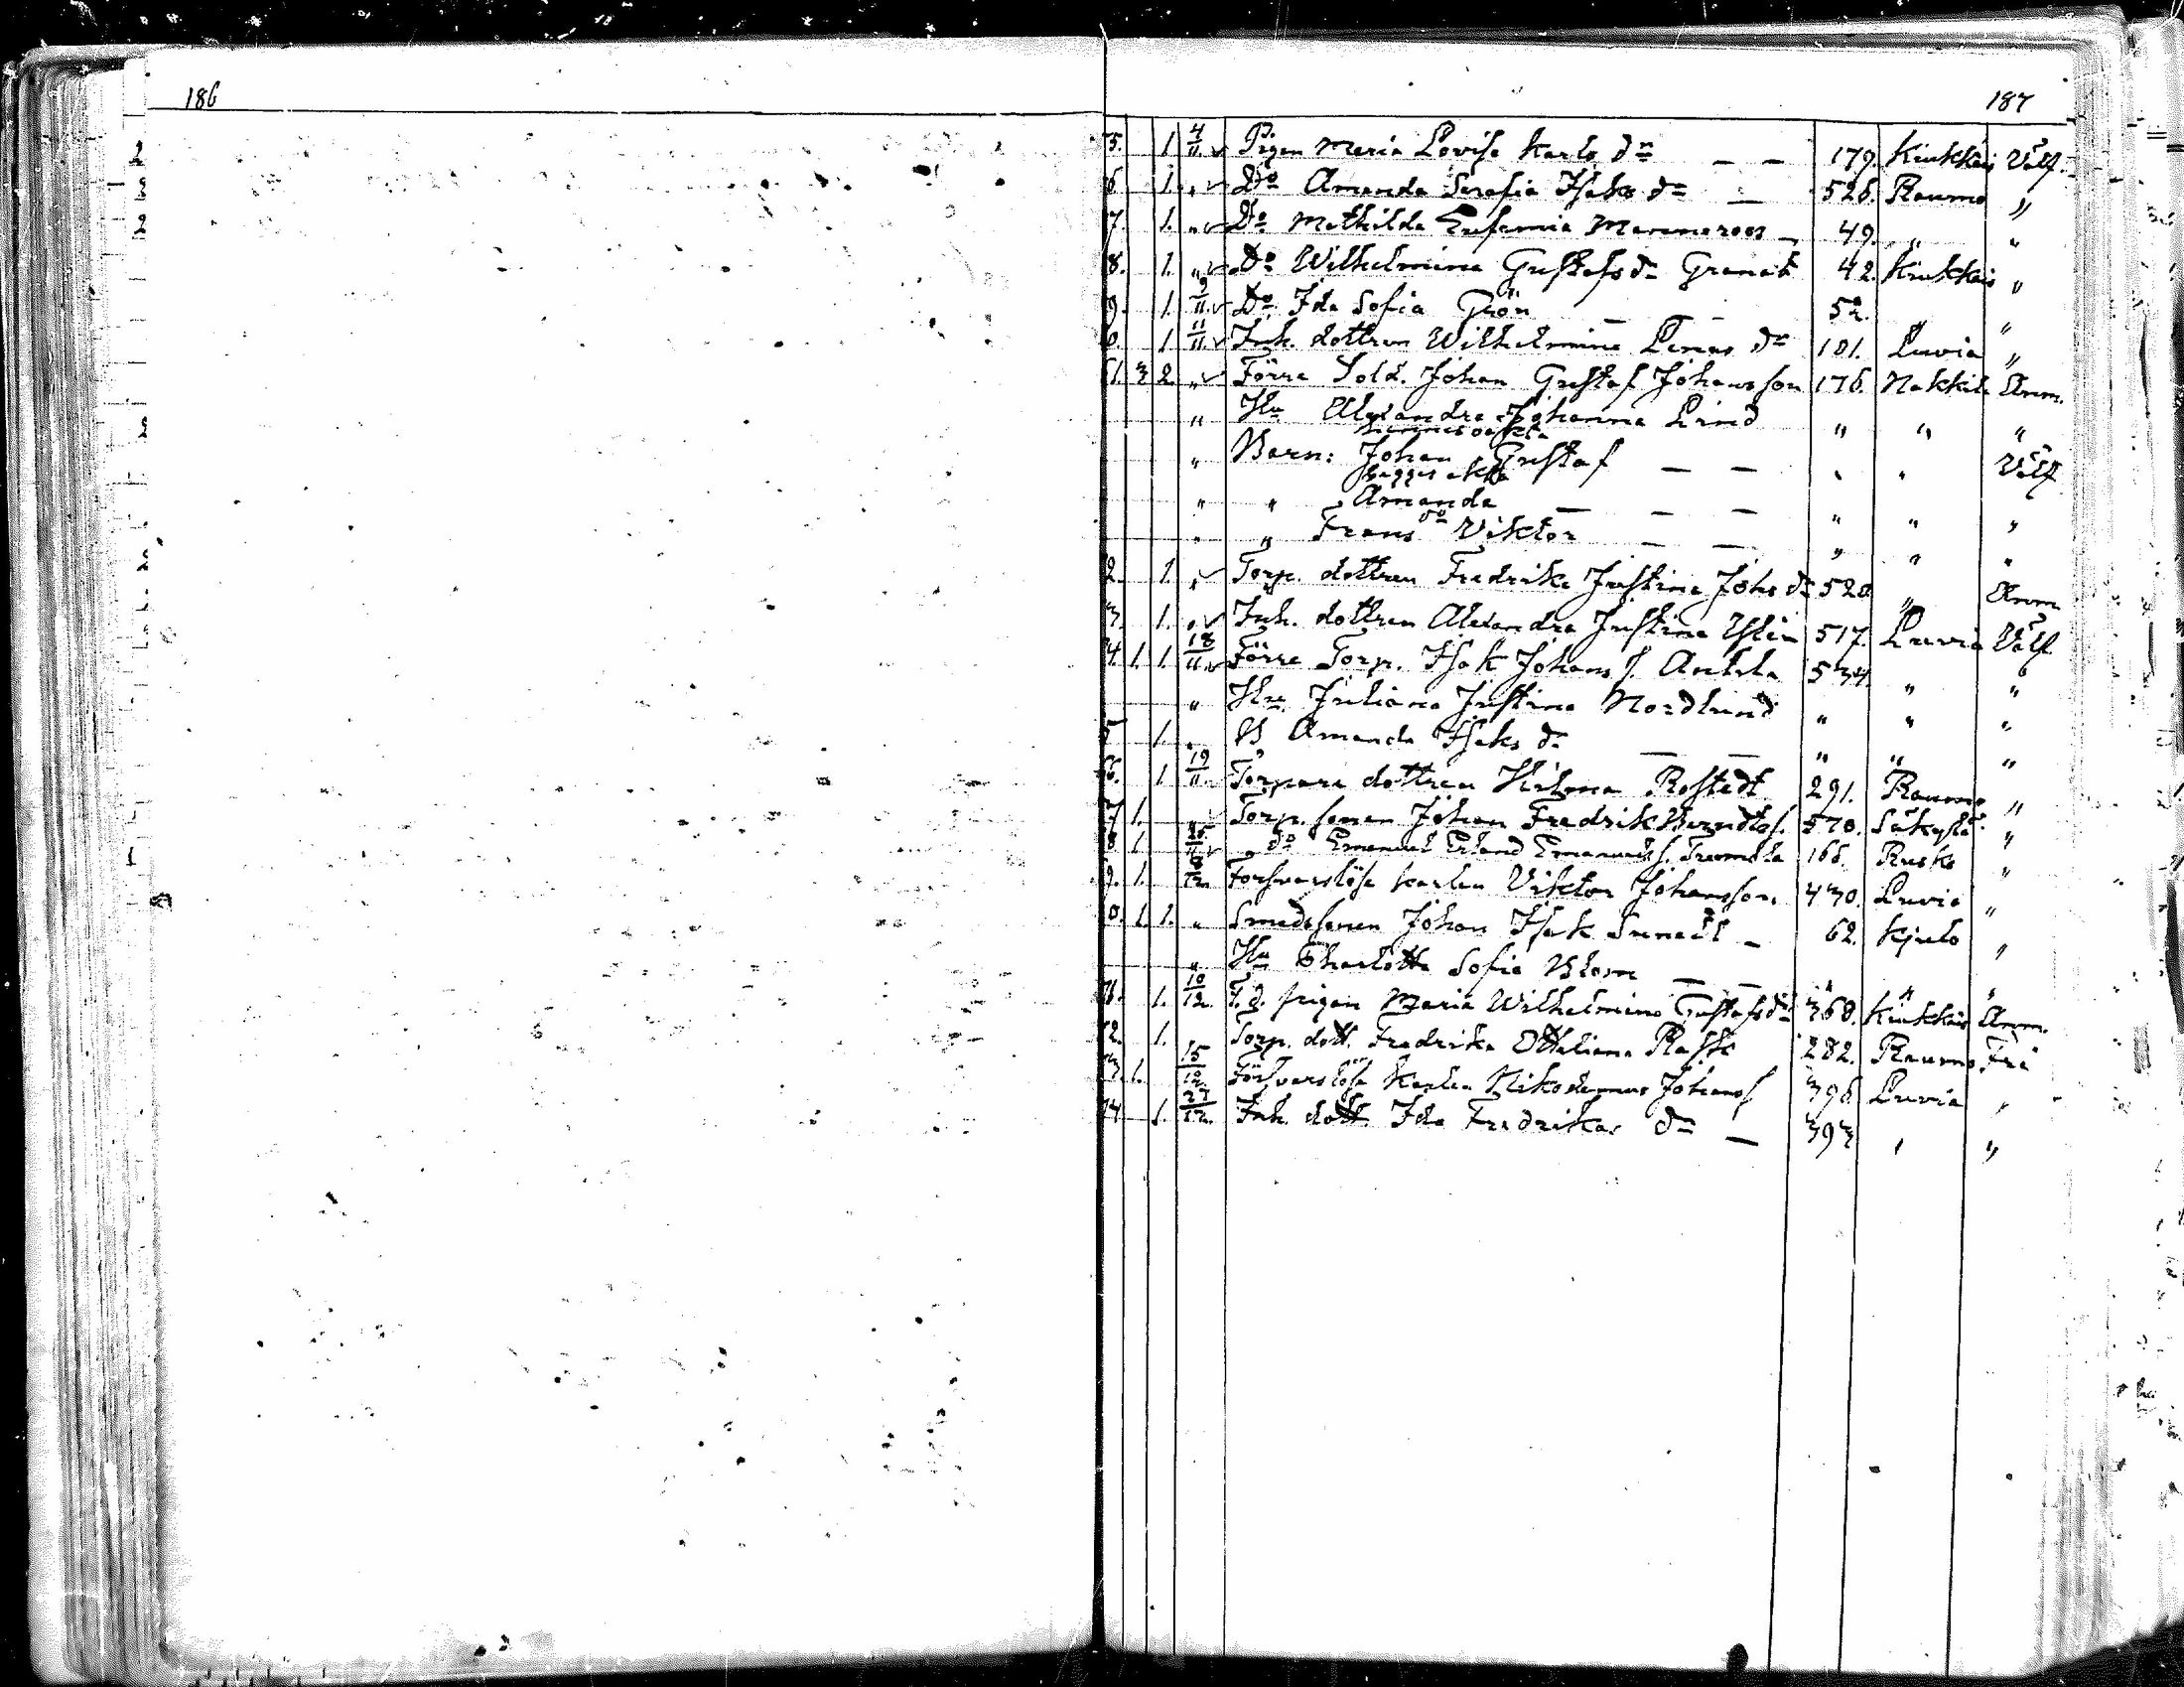 186
187
5. 1 4/11 Pigen Maria Lovisa Karls dr — — 179. Kiukkais Välf.
6 1. " Do Amanda Serafia Isaks dr — 526. Raumo "
7. 1. " Do Mathilda Eufemia Marmeroos — 49. " "
8. 1. " Do Wilhelmina Gustafs dr Granat 42. Kiukkais "
9. 1 9/11 Do Ida Sofia Grön — — 52. " "
0. 1 11/11 Inh. dottren Wilhelmina Linas dr 101. Luvia "
61. 3 2 " Förre Sold. Johan Gustaf Johansson 176. Nakkila Anm.
" Hu Alexandra Johanna Lind " " "
" Barn: Johan Gustaf — — " " Välf
" " Amanda — — — " " "
do
" " Frans Viktor — — " " "
2. 1. " Torp. dottren Fredrika Justina Johs dr 520. " Anm
3. 1. " Inh. dottren Alexandra Justina 517. Luvia Välf
4. 1. 1. 18/11 Förre Torp. Isak Johans s. Anttila 534. " "
" Hu Juliana Justina Nordlund " " "
5 1. " B Amanda Isaks dr — — " " "
6. 1 19/11 Torpare dottren Hilma Rostedt 291. Raumo "
7 1. " Torp. sonen Johan Fredrik Berndts s. 570. Säkylä "
8 1 25/11 " do Emanuel Erland Emanuels s. 166. Rusko "
9. 1. 8/12 Försvarslöse karlen Viktor Johansson 430. Luvia "
0. 1. 1. " Smedssonen Johan Isak Sunedt — 62. Kjulo "
" Hu Charlotta Sofia Blom — — " " "
71. 1. 10/12 F. d. pigan Maria Wilhelmina Gustafs dr 368. Kiukkais Anm.
2. 1. Torp. dott. Fredrika Ottiliana Rask 282. Raumo Fri
3. 1. 15/12 Försvarslöse Karlen Nikodemus Johans s 396. Luvia "
74 1. 27/12 Inh. dott. Ida Fredrikas dr — 393 " "